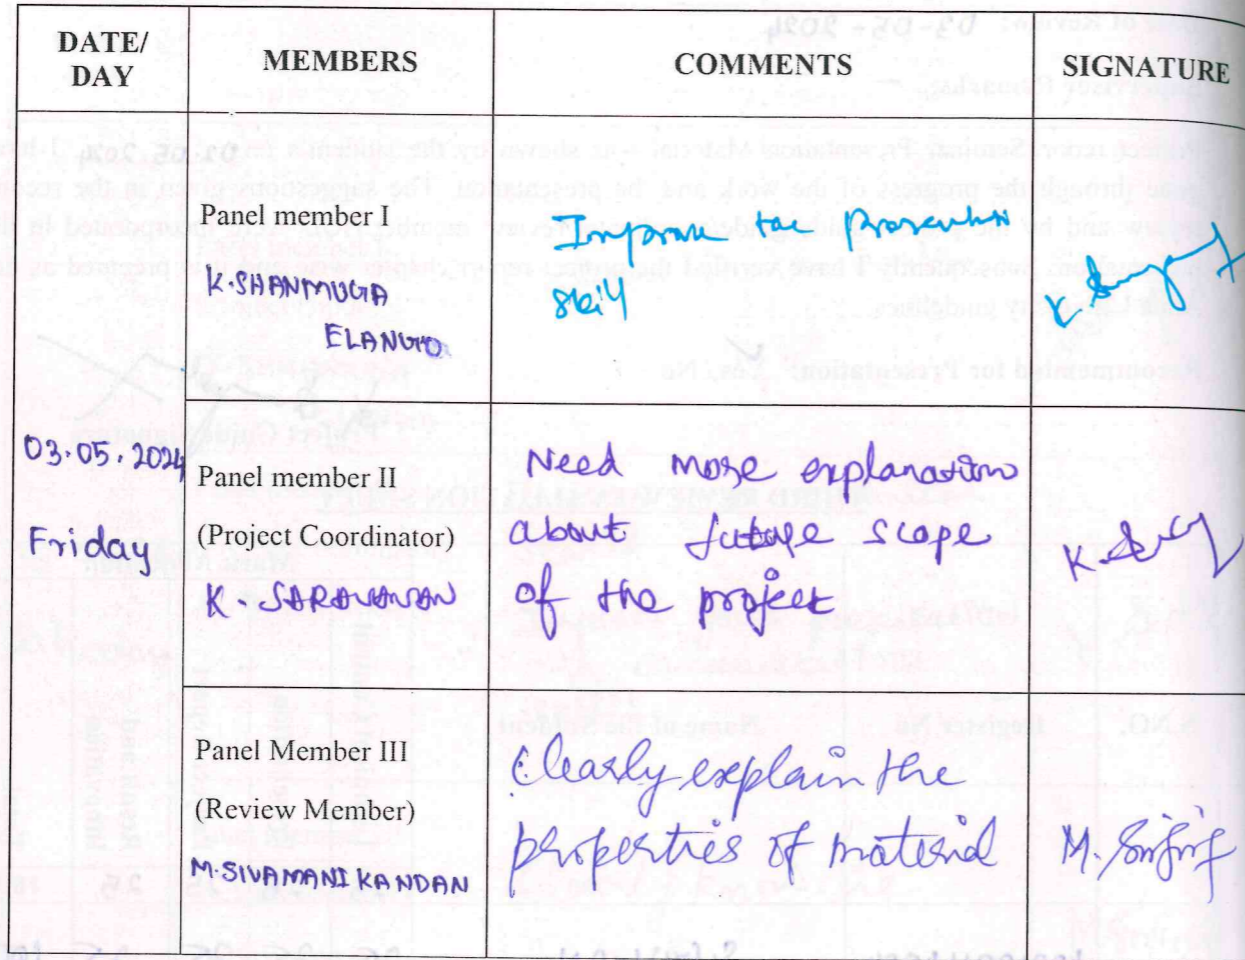 DATE/
DAY
MEMBERS
COMMENTS
SIGNATURE
Panel member I
K. SHANMUGA
ELANGO
Improve the
skill
03.05.2024
Friday
Panel member II
(Project Coordinator)
K. SARAVANAN
Need more explanation
about future scope
of the project
Panel Member III
(Review Member)
M. SIVAMANIKANDAN
Clearly explain the
properties of material